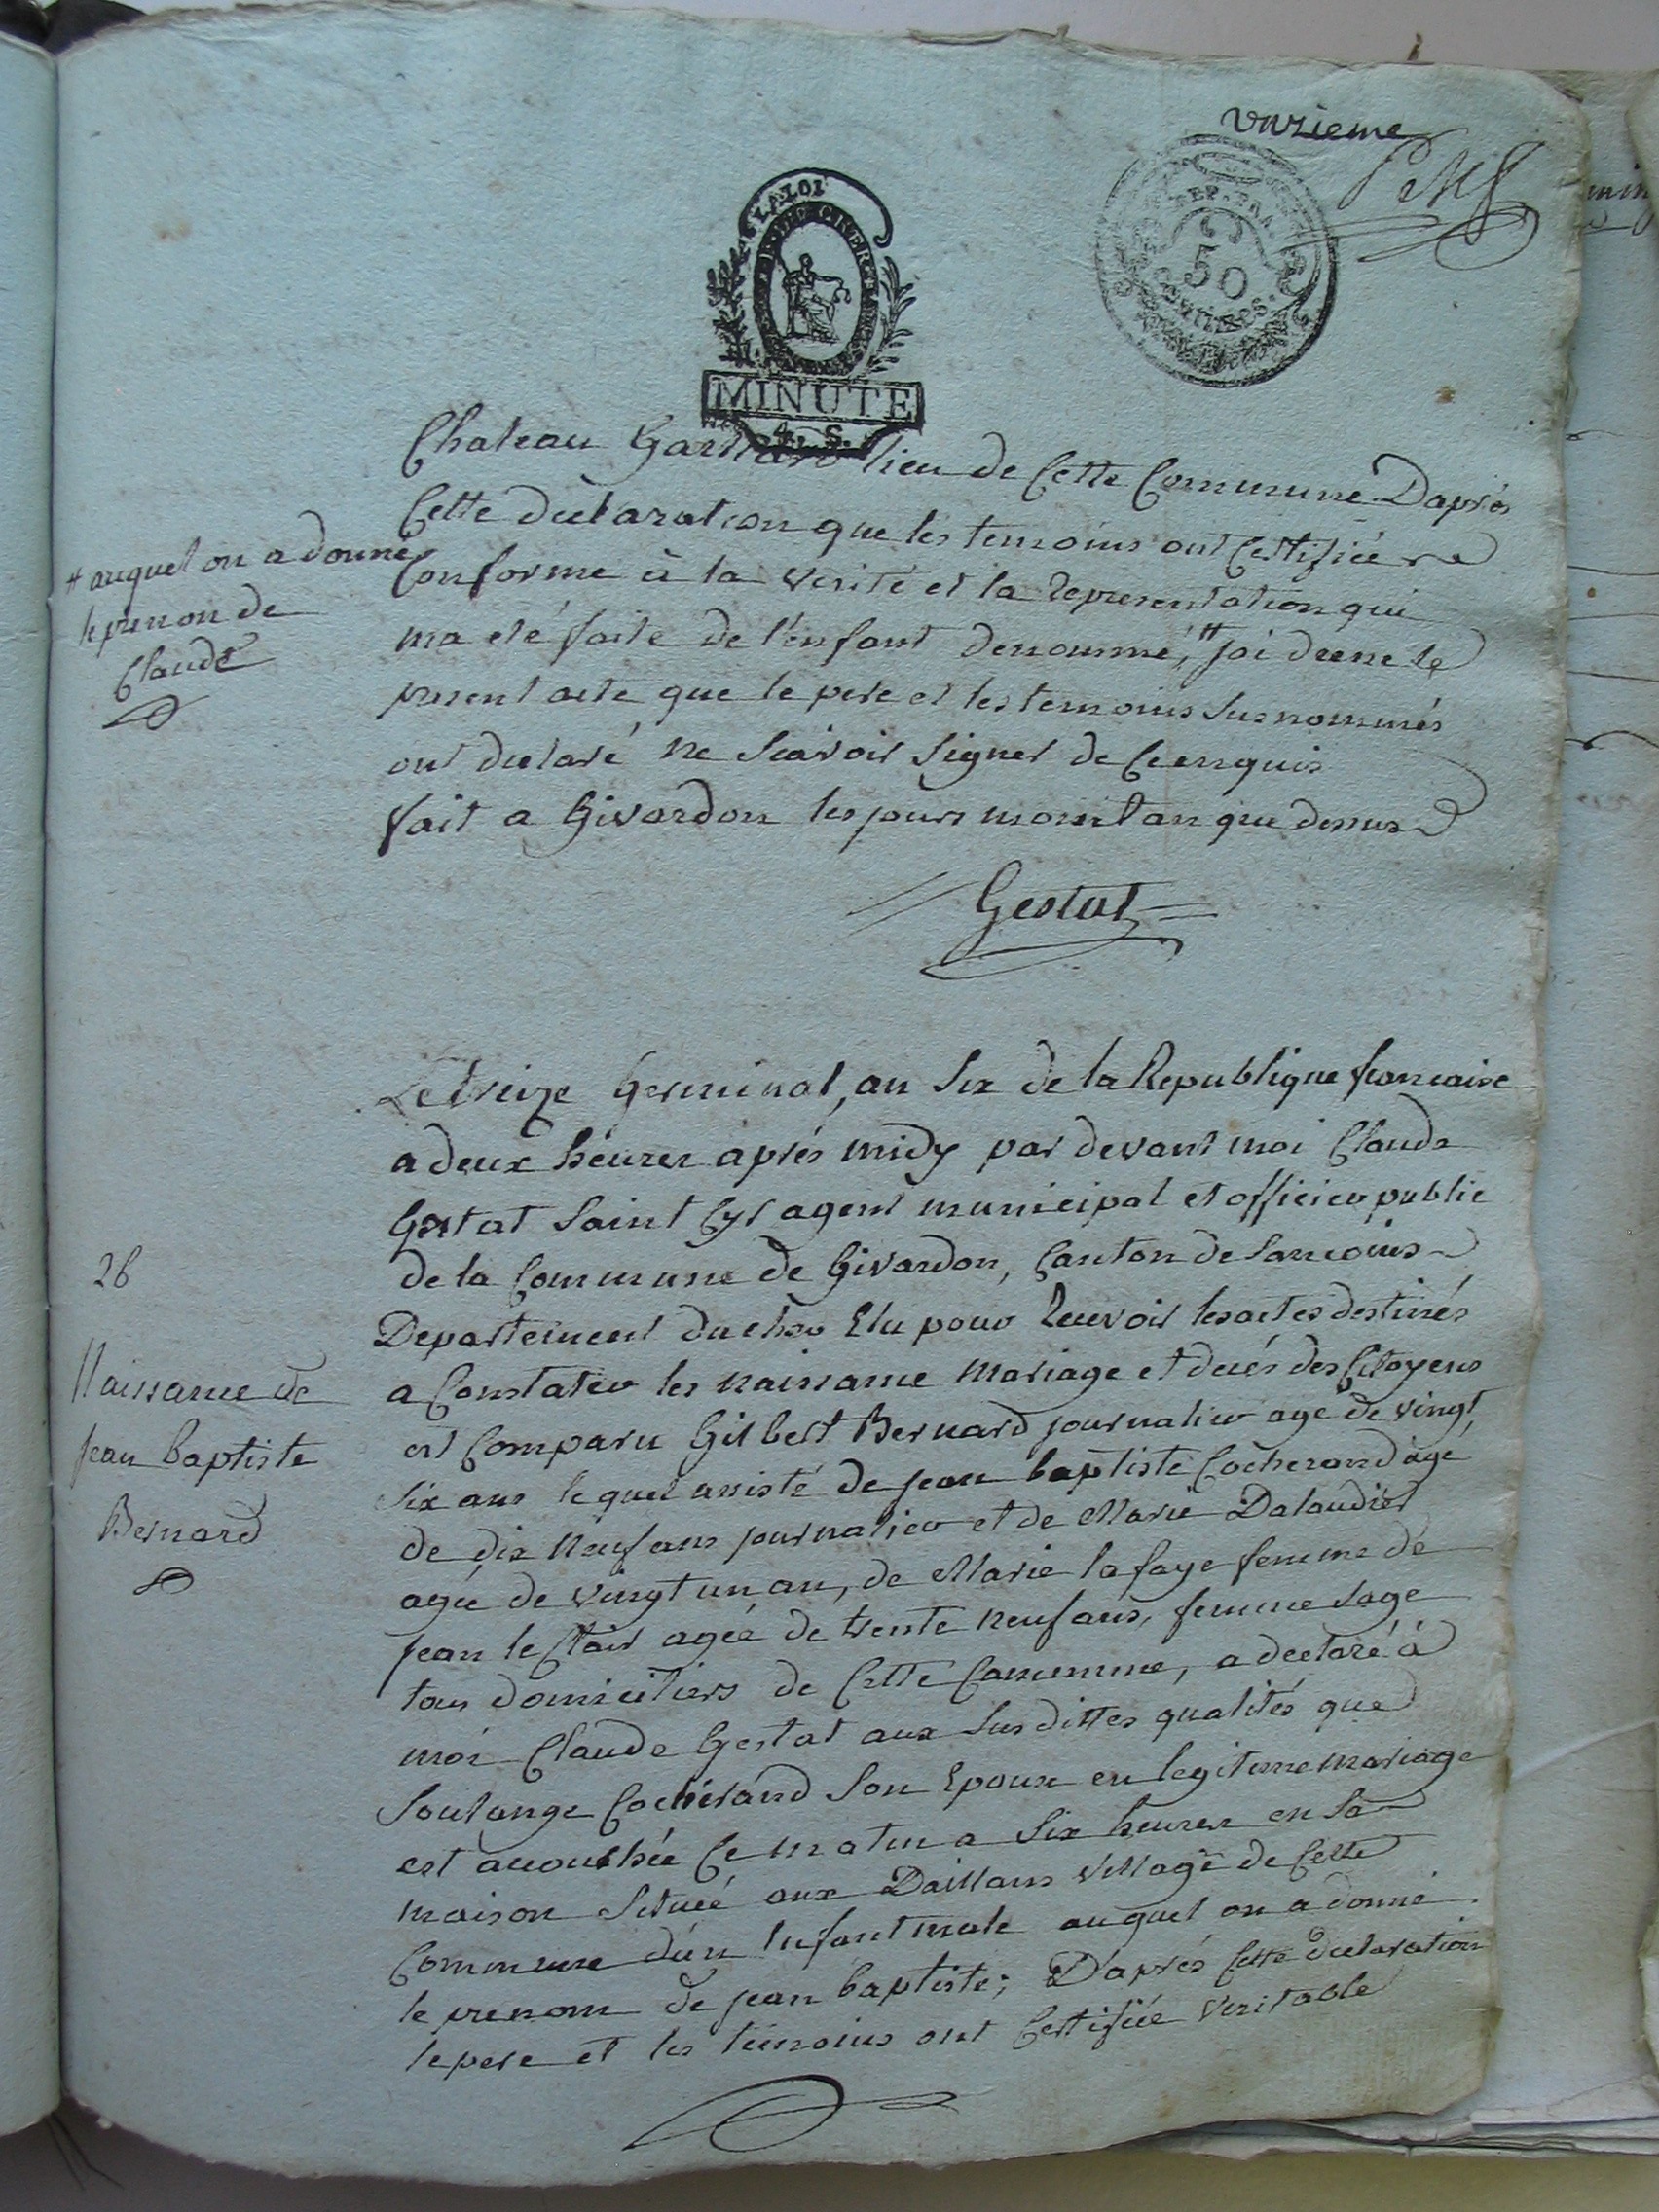 onzieme
LA LOI
REP. FRA.
50
centimes.
MINUTE
4. S.
Chateau Gaillard lieu de Cette Commune Daprés
Cette déclaration que les temoins ont Certifiée
Conforme à la verité et la representation qui
ma eté faite de l'enfant denommé, # jai décrié le
present acte que le pere et les temoins susnommés
ont declaré ne scavoir signer de Ce enquis
fait a Givardon les jours mois et an que dessus
# auquel on a donné
le prenon de
Claude
Gestat
Le treize Germinal, an six de la Republique francaise
a deux héures aprés midy par devant moi Claude
Gestat Saint Cyr agent municipal et officier public
de la Commune de Givardon, Canton de Sancoins
Departement du cher Elu pour recevoir les actes destinés
a Constater les naissance mariage et decés des Citoyens
est Comparu Gilbert Bernard journalier agé de vingt
six ans le quel assisté de jean baptiste Cocherand agé
de dix neuf ans journalier et de Marie Dalaudier
agée de vingt un an, de Marie lafaye femme de
jean le Clair agée de trente neuf ans, femme sage
tous domiciliers de Cette Commune, a declaré à
moi Claude Gestat aux susdittes qualités que
Soulange Cocherand son Epouse en legitime mariage
est accouchée Ce matin a six heures en sa
maison située aux Daillans village de Cette
Commune d'un Enfant male auquel on a donné
le prenom de jean baptiste; D'aprés Cette declaration
le pere et les temoins ont Certifiée veritable
26
Naissance de
jean baptiste
Bernard